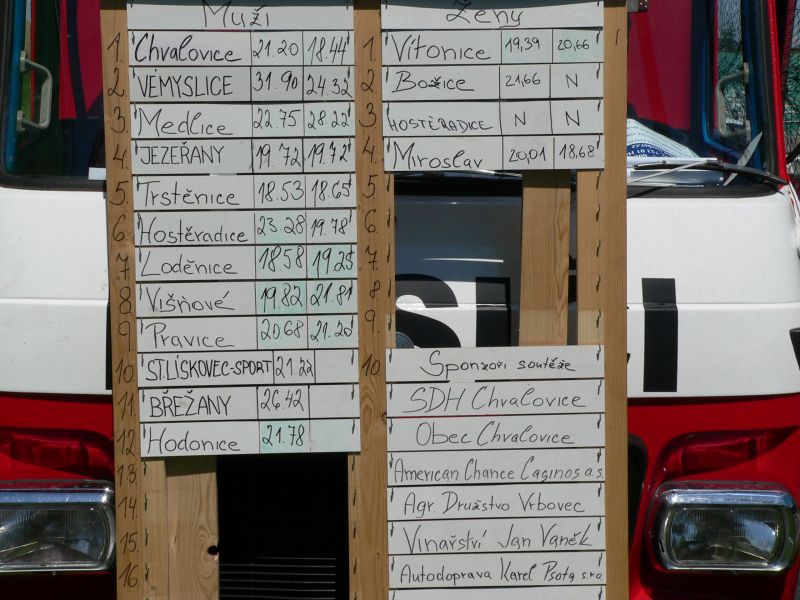 Muži
1. Chvalovice 21.20 18.44
2. VÉMYSLICE 31.90 24.32
3. Medlice 22.75 28.22
4. JEZEŘANY 19.72 19.72
5. Trstěnice 18.53 18.65
6. Hostěradice 23.28 19.78
7. Loděnice 18.58 19.25
8. Višňové 19.82 21.81
9. Pravice 20.68 21.22
10. ST.LÍSKOVEC-SPORT 21.22
11. BŘEŽANY 26.42
12. Hodonice 21.78
13.
14.
15.
16.
Ženy
1. Vítonice 19,39 20,66
2. Božice 21,66 N
3 HOSTĚRADICE N N
4. Miroslav 20,01 18,68
5.
6.
7.
8
9.
10.
Sponzoři soutěže
SDH Chvalovice
Obec Chvalovice
American Chance Casinos a.s.
Agr. Družstvo Vrbovec
Vinařství Jan Vaněk
Autodoprava Karel Psota s.r.o.